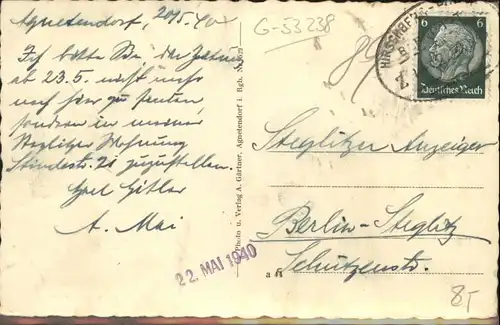 Agnetendorf, 20/5. 40
Ich bitte Sie die Zeitung
ab 23.5. nicht mehr
nach hier zu senden,
sondern in meine
Steglitzer Wohnung
Stindestr. 21 zuzustellen.
Heil Hitler
A. Mai
22. MAI 1940
Photo u. Verlag A. Gärtner, Agnetendorf i. Rgb.
G-53238
6 6
Deutsches Reich
Steglitzer Anzeiger
Berlin-Steglitz
Schützenstr.
85